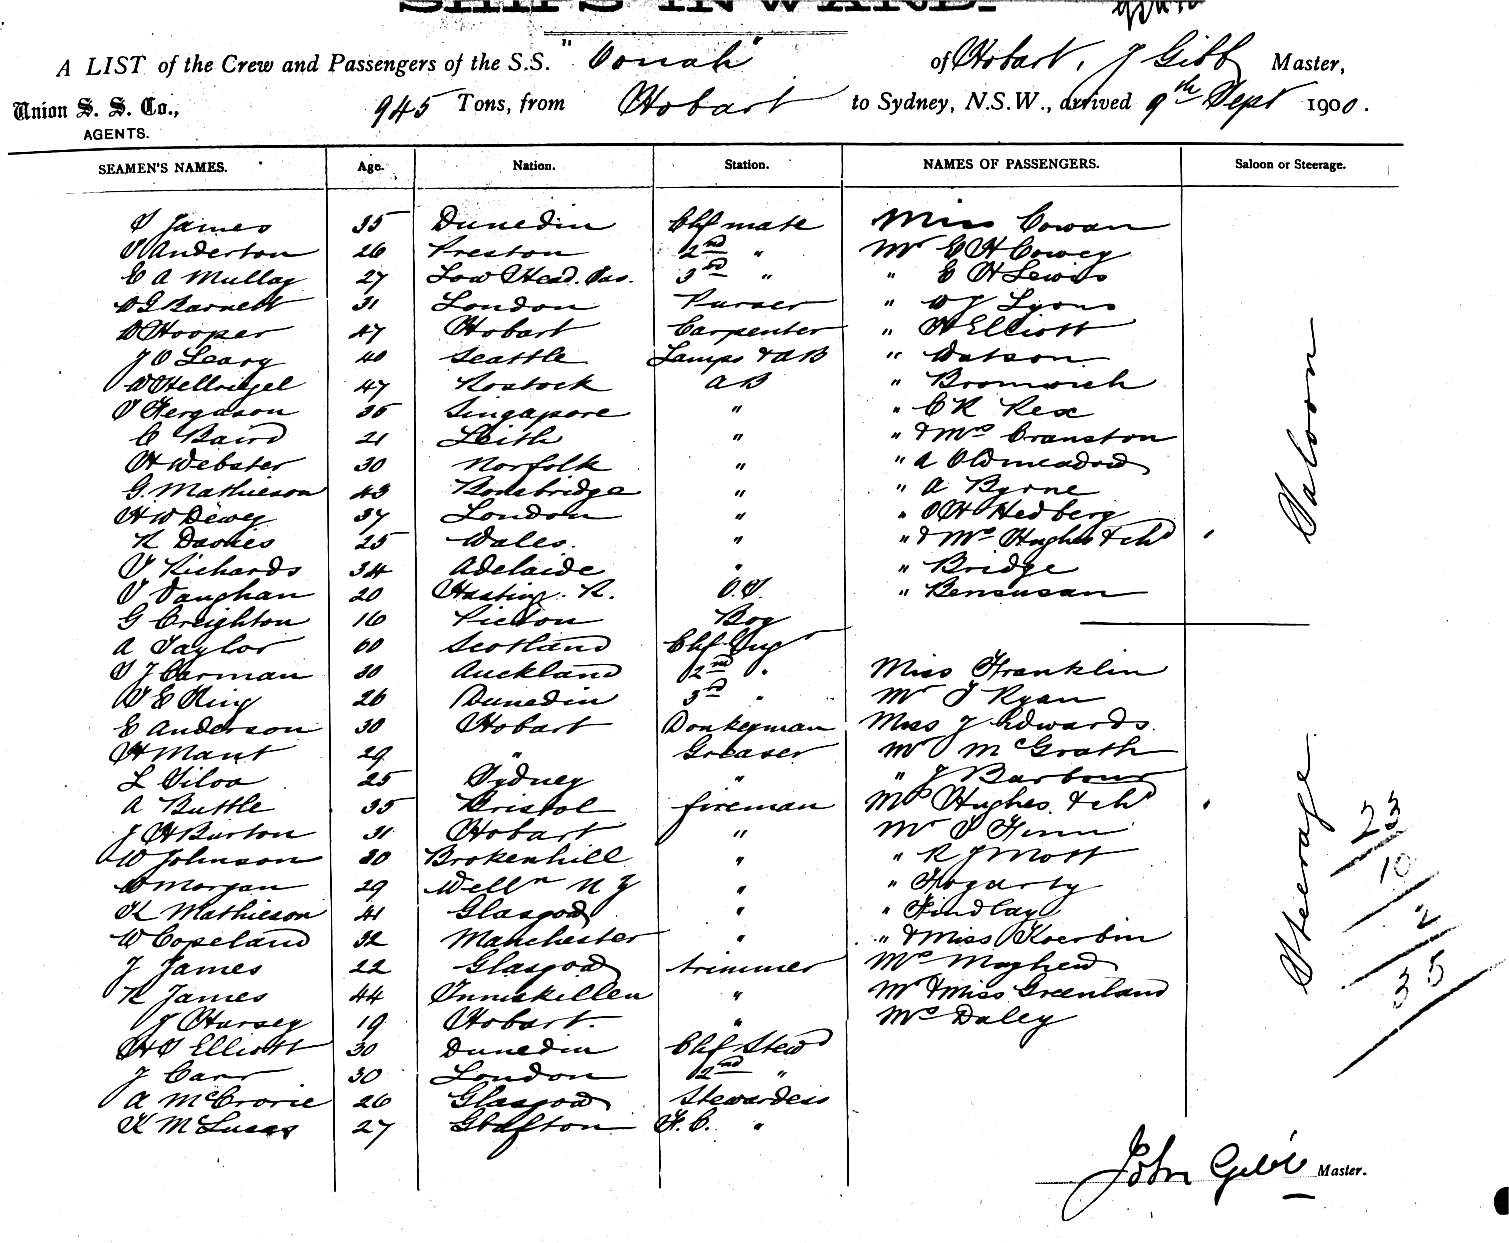 SHIPS INWARD.
A LIST of the Crew and Passengers of the S.S. "Oonah" of Hobart, J Gibb Master,
Union S. S. Co., 945 Tons, from Hobart to Sydney, N.S.W., arrived 9th Sept 1900.
AGENTS.
SEAMEN'S NAMES. Age. Nation. Station. NAMES OF PASSENGERS. Saloon or Steerage.
T James 35 Dunedin Chf mate Miss Cowan
T Anderton 26 Preston 2nd " Mr E H Cowey
E A Mullay 27 Low Head. Tas. 3rd " " E H Lewis
W G Barnett 31 London Purser " W J Lyons
W Hooper 47 Hobart Carpenter " H Elliott
J O Leary 40 Seattle Lamps & AB " Watson
W Hellriegel 47 Rostock AB " Bromwich
T Ferguson 35 Singapore " " C R Rex
C Baird 21 Leith " " & Mrs Cranston
H Webster 30 Norfolk " " A Oldmeadow
G. Mathieson 43 Bonebridge " " A Byrne
H W Dewey 37 London " " O H Hedberg
R Davies 25 Wales. " " & Mrs Hughes & chd
T Richards 34 Adelaide " " Bridge
T Vaughan 20 Hastings R. O.S. " Bensusan
G Creighton 16 Picton Boy
Saloon
A Taylor 60 Scotland Chf Eng
T J Carman 30 Auckland 2nd " Miss Franklin
W E King 26 Dunedin 3rd " Mr T Ryan
E Anderson 30 Hobart Donkeyman Miss J Edwards
H Mant 29 " Greaser Mr McGrath
L Silva 25 Sydney " " J Barbour
A Buttle 35 Bristol fireman Mrs Hughes & chd
J H Burton 31 Hobart " Mr T Finn
W Johnson 30 Brokenhill " " R J Mott
W Morgan 29 Welln N Z " " Fogarty
K Mathieson 41 Glasgow " " Findlay
W Copeland 32 Manchester " " & Miss Koerbin
J James 22 Glasgow trimmer Mrs Mayhew
R James 44 Inniskillen " Mr & Miss Greenland
J Hursey 19 Hobart. " Mrs Daley
Steerage
23
10
2
35
H T Elliott 30 Dunedin Chf Stewd
J Carr 30 London 2nd "
A McCrorie 26 Glasgow Stewardess
K M Lucas 27 Grafton F.C. "
John Gibb Master.